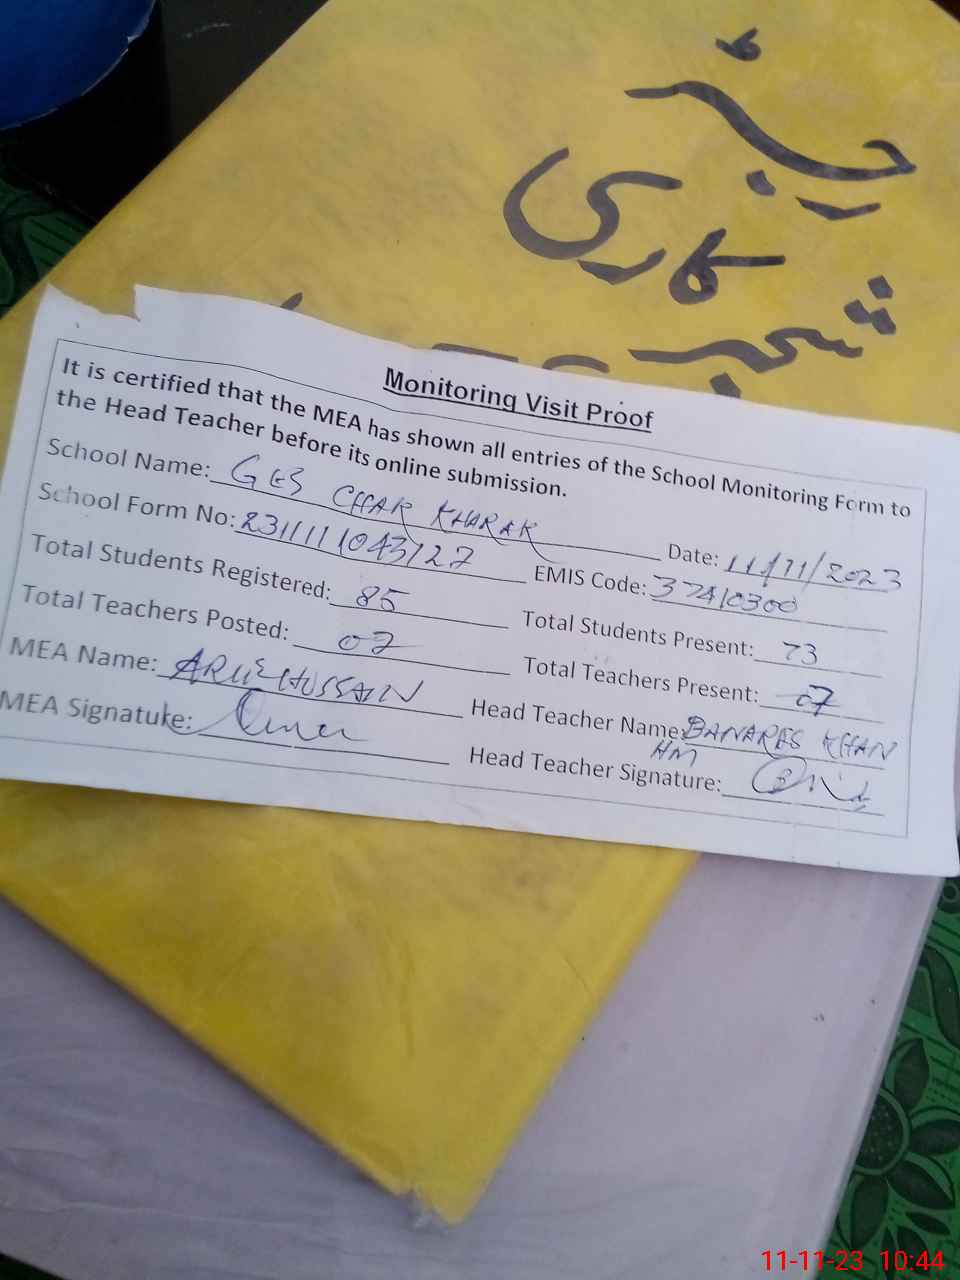 رجسٹر
شجر کاری
Monitoring Visit Proof
It is certified that the MEA has shown all entries of the School Monitoring Form to
the Head Teacher before its online submission.
School Name: GES CHAR KHARAK Date: 11/11/2023
School Form No: 231111043127 EMIS Code: 37410300
Total Students Registered: 85 Total Students Present: 73
Total Teachers Posted: 07 Total Teachers Present: 07
MEA Name: HUSSAIN Head Teacher Name: BANARES KHAN
HM
MEA Signatuke: Head Teacher Signature:
11-11-23 10:44